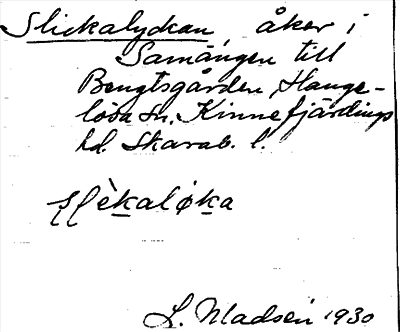 Slickalyckan, åker i
Samängen till
Bengtsgården, Hange-
lösa sn. Kinnefjärdings
hd. Skarab. l.
èkaløka
L. Madsen 1930